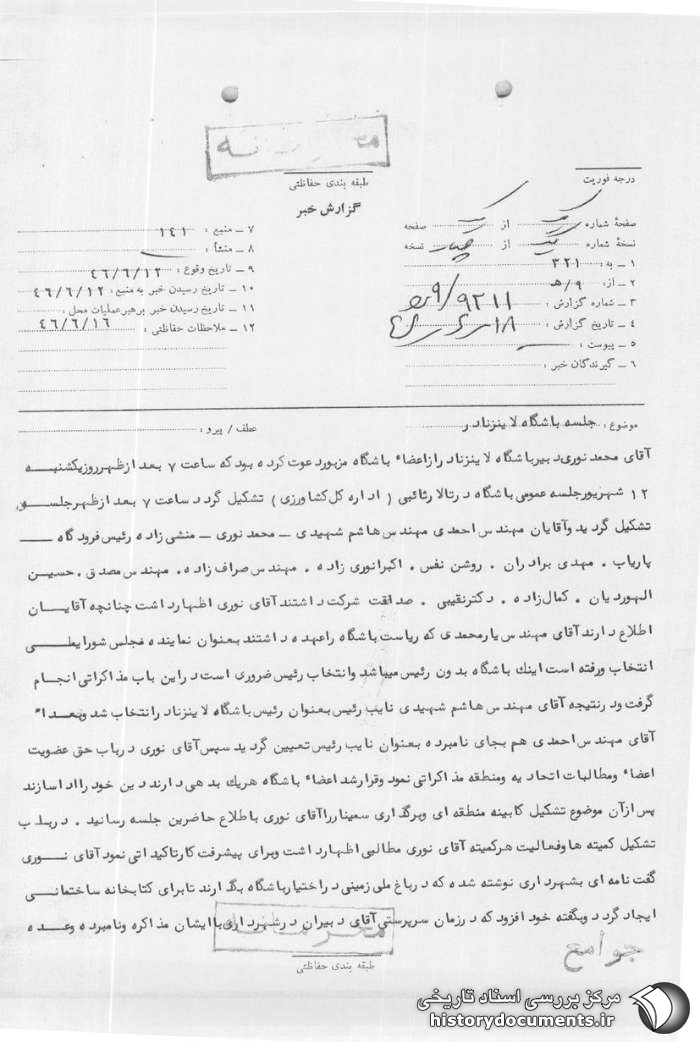 محرمانه
طبقه بندی حفاظتی
گزارش خبر
درجه فوریت
صفحهٔ شماره یک از یک صفحه
نسخهٔ شماره یک از چهار نسخه
۱ ــ به : ۳۲۱
۲ ــ از : ۹/ﻫ
۳ ــ شماره گزارش : ۹۲۱۱/۹ﻫ
۴ ــ تاریخ گزارش :
۵ ــ پیوست :
۶ ــ گیرندگان خبر :
۷ ــ منبع : ۱۴۱
۸ ــ منشأ :
۹ ــ تاریخ وقوع : ۴۶/۶/۱۲
۱۰ ــ تاریخ رسیدن خبر به منبع : ۴۶/۶/۱۲
۱۱ ــ تاریخ رسیدن خبر برهبر عملیات محل :
۱۲ ــ ملاحظات حفاظتی : ۴۶/۶/۱۶
موضوع : جلسه باشگاه لاینزنادر
عطف / پیرو :
آقای محمد نوری دبیر باشگاه لاینزنادر از اعضاء باشگاه مزبور دعوت کرده بود که ساعت ۷ بعد از ظهر روز یکشنبه
۱۲ شهریور جلسه عمومی باشگاه در تالار تائبی ( اداره کل کشاورزی ) تشکیل گردد ساعت ۷ بعد از ظهر جلسه
تشکیل گردید و آقایان مهندس احمدی مهندس هاشم شهیدی ــ محمد نوری ــ منشی زاده رئیس فرودگاه ــ
پاریاب . مهدی برادران . روشن نفس . اکبرانوری زاده . مهندس صراف زاده . مهندس مصدق . حسین
الهوردیان . کمال زاده . دکترنقیبی . صداقت شرکت داشتند آقای نوری اظهار داشت چنانچه آقایان
اطلاع دارند آقای مهندس یارمحمدی که ریاست باشگاه را عهده داشتند بعنوان نماینده مجلس شورایملی
انتخاب و رفته است اینك باشگاه بدون رئیس میباشد و انتخاب رئیس ضروری است در این باب مذاکراتی انجام
گرفت و در نتیجه آقای مهندس هاشم شهیدی نایب رئیس بعنوان رئیس باشگاه لاینزنادر انتخاب شد و بعداً
آقای مهندس احمدی هم بجای نامبرده بعنوان نایب رئیس تعیین گردید سپس آقای نوری در باب حق عضویت
اعضاء و مطالبات اتحادیه و منطقه مذاکراتی نمود و قرار شد اعضاء باشگاه هریك بدهی دارند دین خود را ادا سازند
پس از آن موضوع تشکیل کابینه منطقه ای و برگذاری سمینار را آقای نوری باطلاع حاضرین جلسه رسانید . در باب
تشکیل کمیته ها و فعالیت هر کمیته آقای نوری مطالبی اظهار داشت و برای پیشرفت کار تاکیداتی نمود آقای نوری
گفت نامه ای بشهرداری نوشته شده که در باغ ملی زمینی در اختیار باشگاه بگذارند تا برای کتابخانه ساختمانی
ایجاد گردد و بگفته خود افزود که در زمان سرپرستی آقای دبیران در شهرداری با ایشان مذاکره و نامبرده وعده
محرمانه
جوامع
طبقه بندی حفاظتی
مرکز بررسی اسناد تاریخی
historydocuments.ir